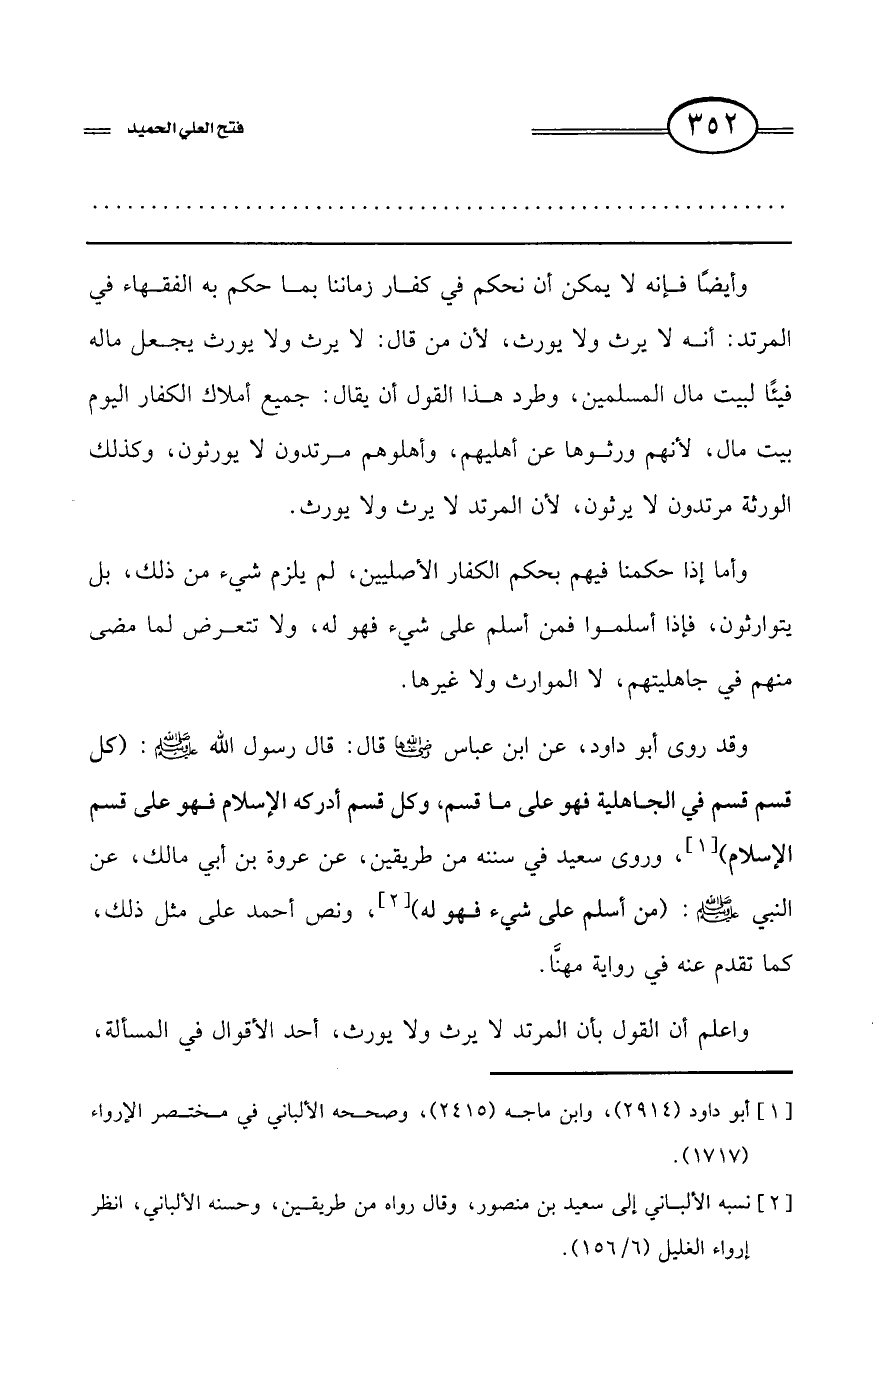 ٣٥٢
فتح العلي الحميد
وأيضًا فإنه لا يمكن أن نحكم في كفار زماننا بما حكم به الفقهاء في
المرتد: أنه لا يرث ولا يورث، لأن من قال: لا يرث ولا يورث يجعل ماله
فيئًا لبيت مال المسلمين، وطرد هذا القول أن يقال: جميع أملاك الكفار اليوم
بيت مال، لأنهم ورثوها عن أهليهم، وأهلوهم مرتدون لا يورثون، وكذلك
الورثة مرتدون لا يرثون، لأن المرتد لا يرث ولا يورث.
وأما إذا حكمنا فيهم بحكم الكفار الأصليين، لم يلزم شيء من ذلك، بل
يتوارثون، فإذا أسلموا فمن أسلم على شيء فهو له، ولا تتعرض لما مضى
منهم في جاهليتهم، لا الموارث ولا غيرها.
وقد روى أبو داود، عن ابن عباس رضي الله عنهما قال: قال رسول الله ﷺ: (كل
قسم قسم في الجاهلية فهو على ما قسم، وكل قسم أدركه الإسلام فهو على قسم
الإسلام)[١]، وروى سعيد في سننه من طريقين، عن عروة بن أبي مالك، عن
النبي ﷺ: (من أسلم على شيء فهو له)[٢]، ونص أحمد على مثل ذلك،
كما تقدم عنه في رواية مهنَّا.
واعلم أن القول بأن المرتد لا يرث ولا يورث، أحد الأقوال في المسألة،
[١] أبو داود (٢٩١٤)، وابن ماجه (٢٤١٥)، وصححه الألباني في مختصر الإرواء
(١٧١٧).
[٢] نسبه الألباني إلى سعيد بن منصور، وقال رواه من طريقين، وحسنه الألباني، انظر
إرواء الغليل (٦/ ١٥٦).